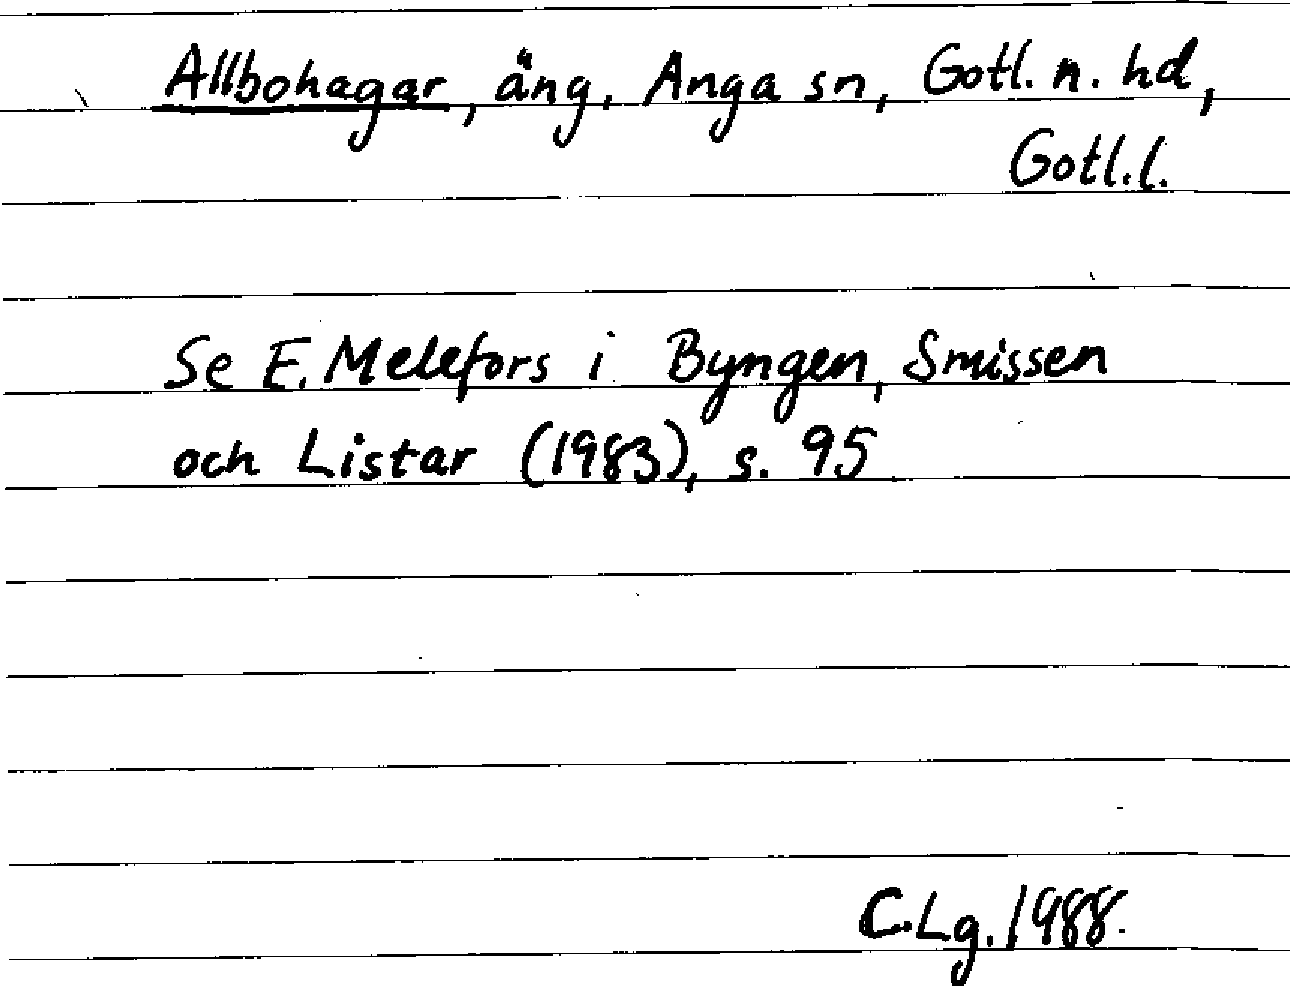 Allbohagar, äng, Anga sn, Gotl. n. hd,
Gotl.l.
Se E. Melefors i Byngen, Smissen
och Listar (1983), s. 95
C.Lg. 1988.